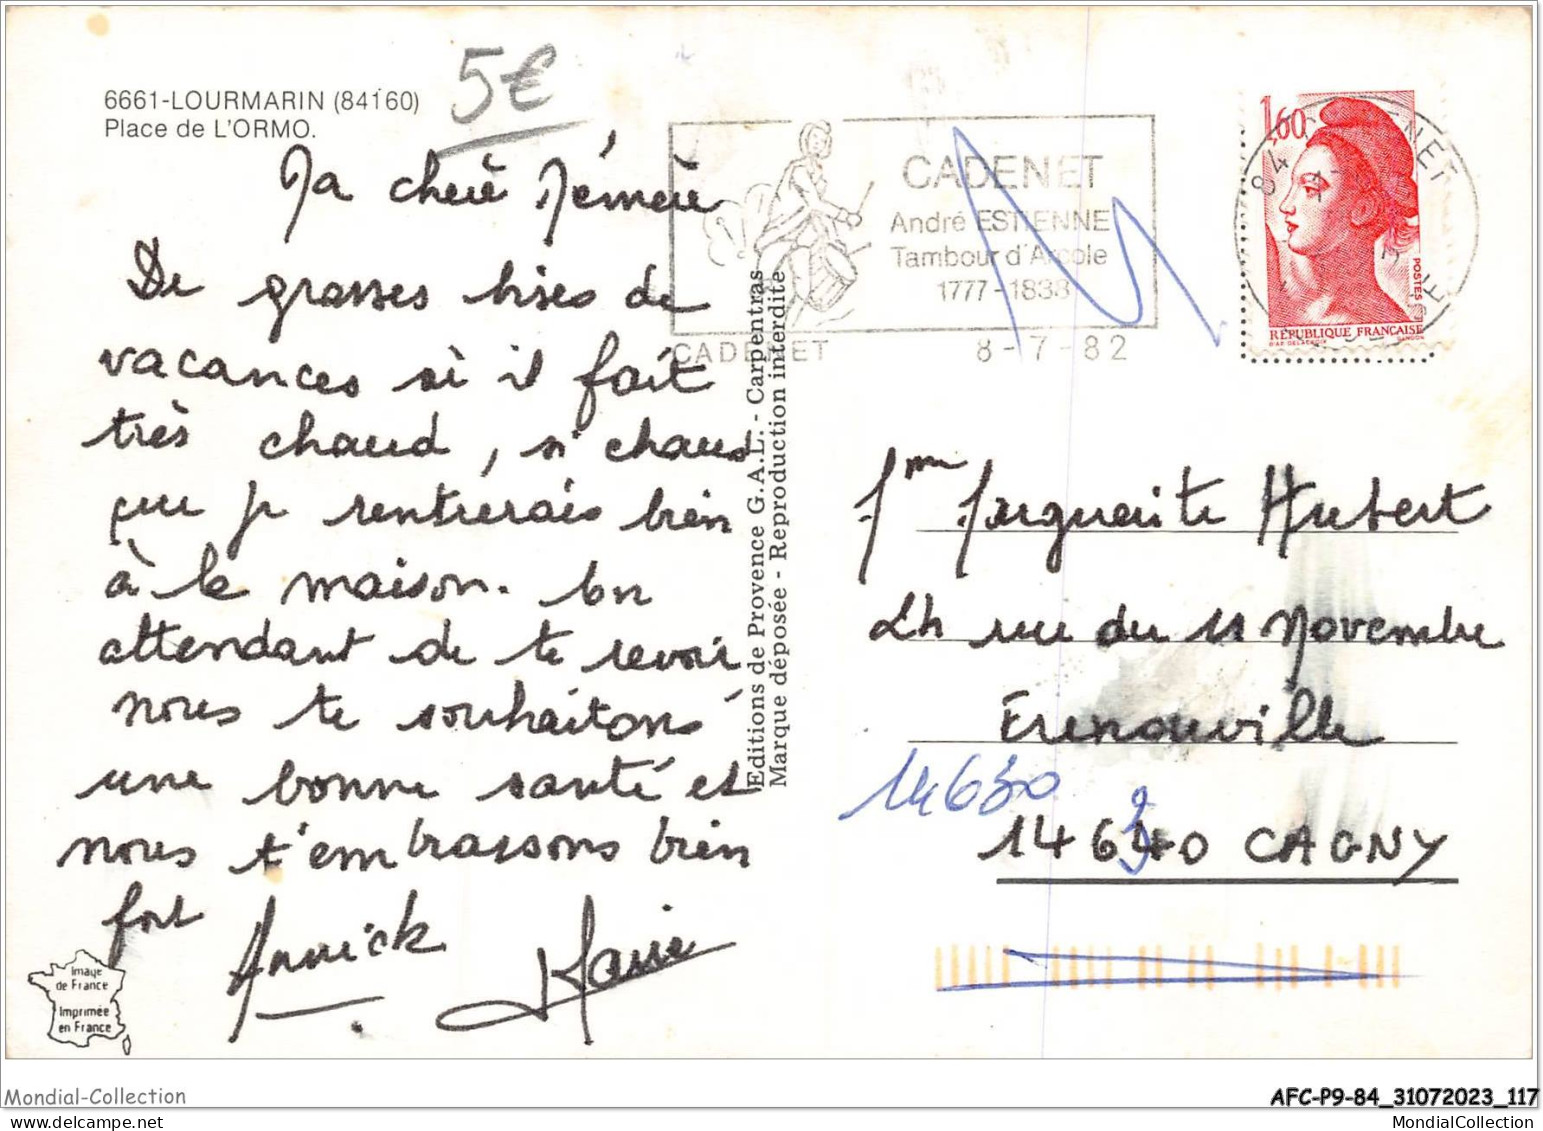 6661-LOURMARIN (84160)
Place de L'ORMO.
5€
Ma chère Mémère
De grosses bises de
vacances où il fait
très chaud, si chaud
que je rentrerais bien
à la maison. En
attendant de te revoir
nous te souhaitons
une bonne santé et
nous t'embrassons bien
fort
Annick
Image
de France
Imprimée
en France
Editions de Provence G.A.L. - Carpentras
Marque déposée - Reproduction interdite
CADENET
André ESTIENNE
Tambour d'Arcole
1777-1838
CADENET 8-7-82
84 CADENET
1,60
POSTES
RÉPUBLIQUE FRANÇAISE
D'AP. DELACROIX GANDON
Mme Marguerite Hubert
24 rue du 11 Novembre
Frenouville
14630
14630 CAGNY
Mondial-Collection
AFC-P9-84_31072023_117
MondialCollection